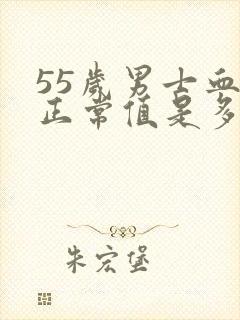 55岁男士血
正常值是多
朱宏堡